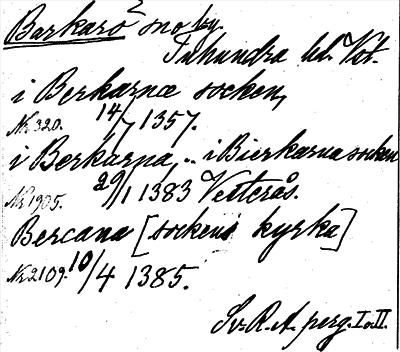 Barkarö 2 sn o by
Tuhundra hd. Vst.
i Berkarnæ socken,
Nr 320. 14/7 1357.
i Berkarna, .. i Bierkarna socken
Nr 1905. 29/1 1383 Vesterås.
Bercana [sockens kyrka]
Nr 2109. 10/4 1385.
Sv. R. A. perg. I o. II.